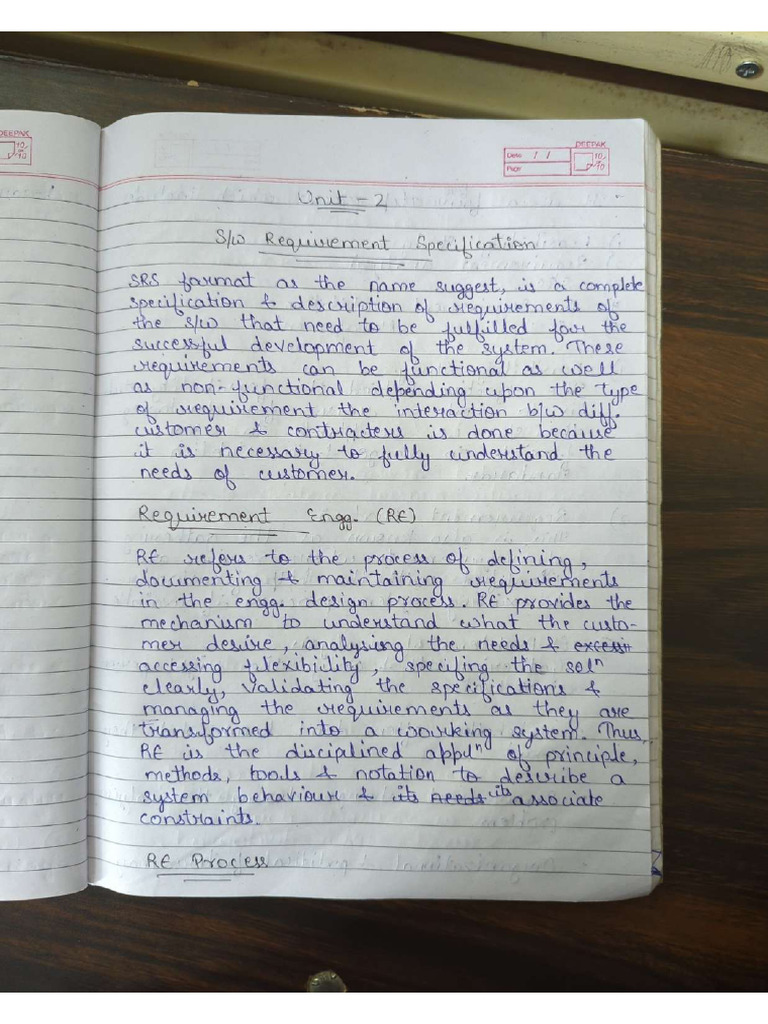 DEEPAK
DEEPAK
Date 1 1
Page
10
10
Unit - 2
S/W Requirement Specification
SRS format as the name suggest, is a complete
specification & description of requirements of
the S/W that need to be fulfilled four the
successful development of the system. These
requirements can be functional as well
as non-functional depending upon the type
of requirement the interaction b/w diff.
customer & contracters is done because
it is necessary to fully understand the
needs of customer.
Requirement Engg. (RE)
RE refers to the process of defining,
documenting & maintaining requirements
in the engg. design process. RE provides the
mechanism to understand what the custo-
mer desire, analysing the needs &
accessing flexibility, specifing the solⁿ
clearly, validating the specifications &
managing the requirements as they are
transformed into a working system. Thus,
RE is the disciplined appuⁿ of principle,
methods, tools & notation to describe a
system behaviour & its needs its associate
constraints.
RE Process